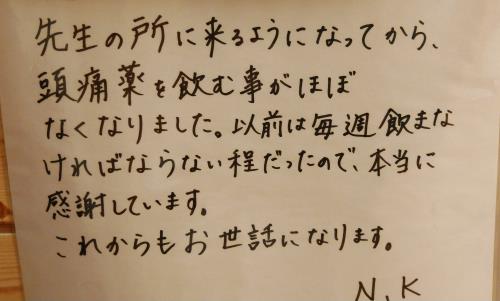 先生の所に来るようになってから、
頭痛薬を飲む事がほぼ
なくなりました。以前は毎週飲まな
ければならない程だったので、本当に
感謝しています。
これからもお世話になります。
N.K